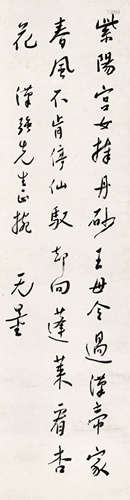 紫陽宮女捧丹砂王母令過漢帝家
春風不肯停仙馭却向蓬萊看杏
花 漢強先生正挽 无量